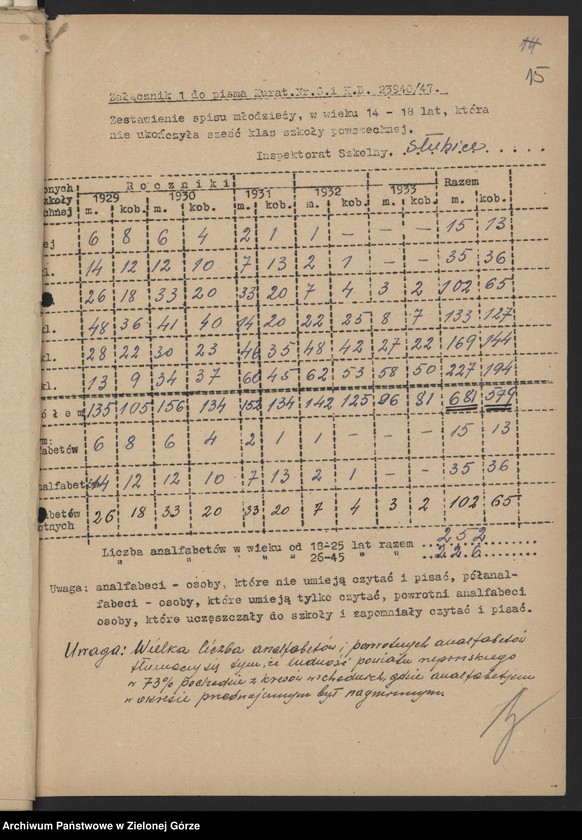 14
15
Załącznik 1 do pisma Kurat.Nr.O.i K.D. 23940/47.
Zestawienie spisu młodzieży, w wieku 14 - 18 lat, która
nie ukończyła sześć klas szkoły powszechnej.
Inspektorat Szkolny. Słubice
onych szkoły chnej Roczniki Razem
1929 1930 1931 1932 1933
m. kob. m. kob. m. kob. m. kob. m. kob. m. kob.
ej 6 8 6 4 2 1 1 - - - 15 13
kl. 14 12 12 10 7 13 2 1 - - 35 36
26 18 33 20 33 20 7 4 3 2 102 65
kl. 48 36 41 40 14 20 22 25 8 7 133 127
kl. 28 22 30 23 46 35 48 42 27 22 169 144
kl. 13 9 34 37 60 45 62 53 58 50 227 194
ółem 135 105 156 134 152 134 142 125 96 81 681 579
m: fabetów 6 8 6 4 2 1 1 - - - 15 13
nalfabetów 14 12 12 10 7 13 2 1 - - 35 36
abetów otnych 26 18 33 20 33 20 7 4 3 2 102 65
Liczba analfabetów w wieku od 18-25 lat razem ..252...
" " " " 26-45 " " ..226...
Uwaga: analfabeci - osoby, które nie umieją czytać i pisać, półanal-
fabeci - osoby, które umieją tylko czytać, powrotni analfabeci
osoby, które uczęszczały do szkoły i zapomniały czytać i pisać.
Uwaga: Wielka liczba analfabetów i powrotnych analfabetów
tłumaczy się tym, że ludność powiatu rzepińskiego
w 73% pochodzi z kresów wschodnich, gdzie analfabetyzm
w okresie przedwojennym był nagminnym.
Archiwum Państwowe w Zielonej Górze